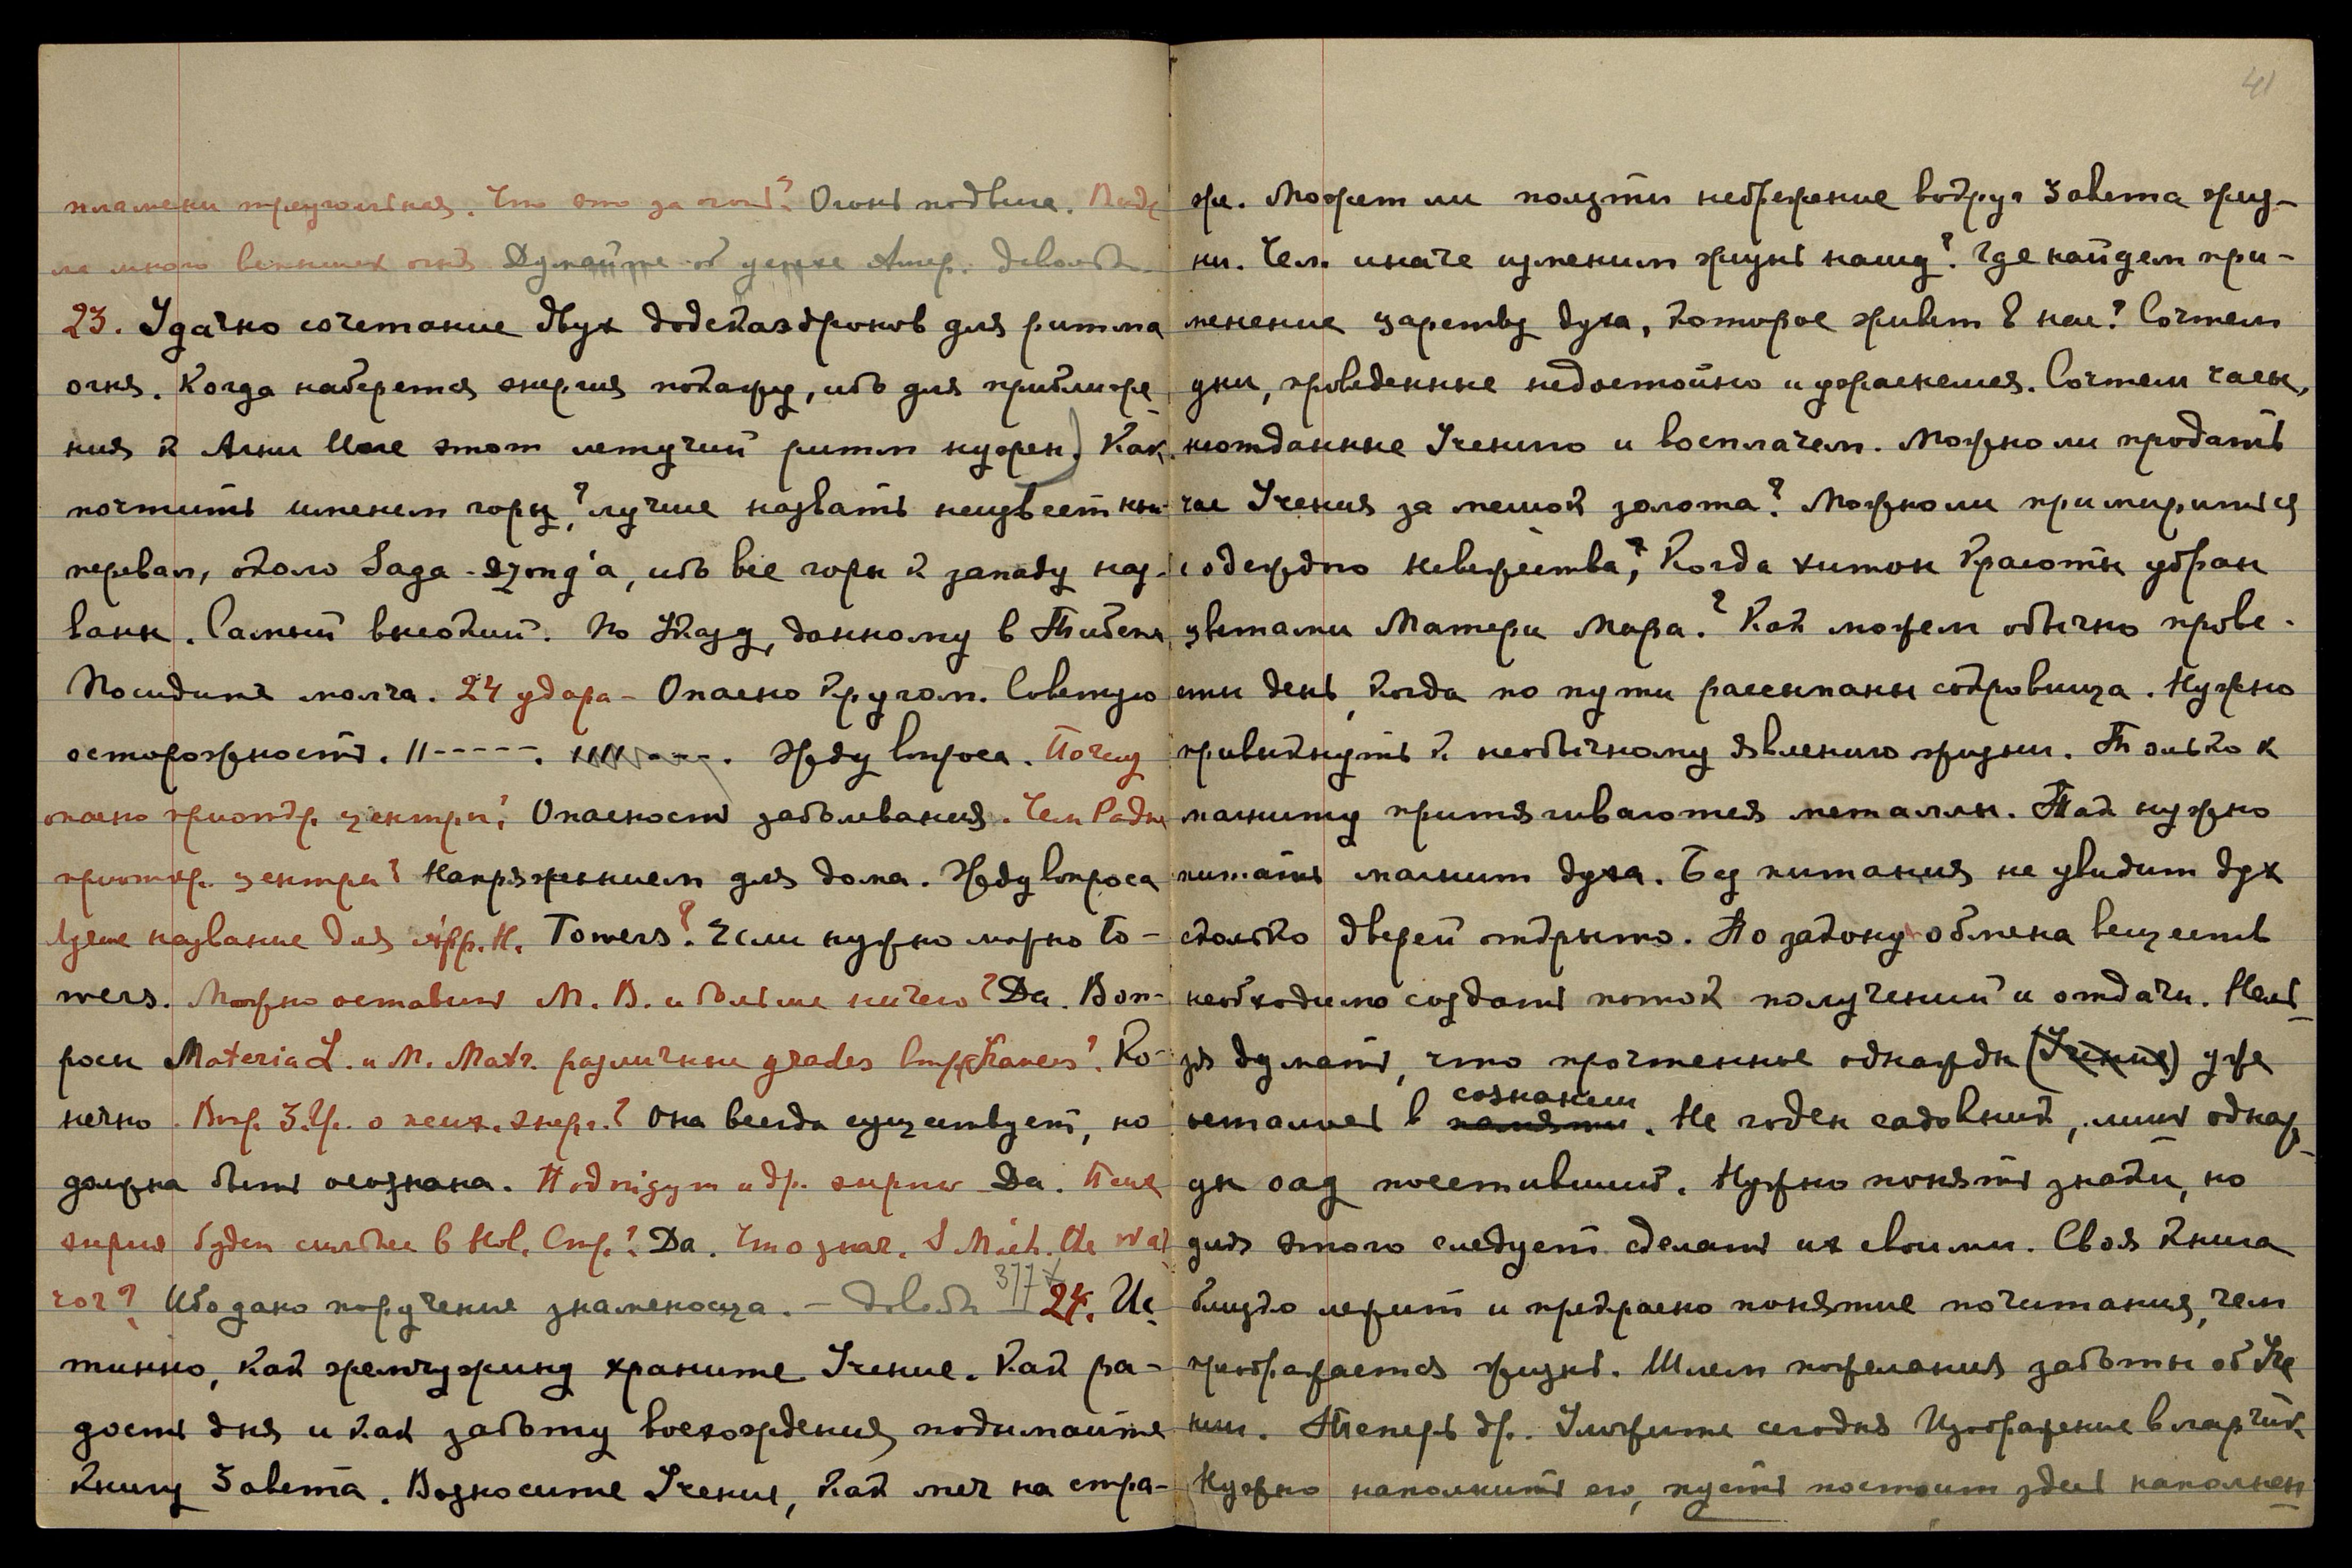 пламени треугольная. Что это за огонь? Огонь подвига. Виде
ла много внешних огней Думайте об успехе Амер. довольно
23. Удачно сочетание двух додекаэдронов для ритма
огня. Когда наберется энергия покажу, ибо для приближе
ния к Агни Йоге этот летучий ритм нужен) Как
почтить именем горы? лучше назвать неизвестный
перевал, около Saga-dzong'a, ибо все горы к западу наз-
ваны. Самый высокий. По Указу, данному в Тибете,
Посидите молча. 24 удара - Опасно кругом. Советую
осторожность. 11-----. Жду вопроса. Почему
опасно приоткр. центры? Опасность заболевания. Чем Радна
приоткр. центры? Напряжением для дома. Жду вопроса
Удачное название для App. H. Towers? Если нужно можно To-
wers. Можно оставить М. В. и больше ничего? Да. Воп-
росы Materia L. и M. Matr. различные grades Конечно
нечно. Вопр. З. Ур. о псих. энерг.? Она всегда существует, но
должна быть осознана. Подойдут и др. энергии Да. Псих
энергия будет сильнее в Нов. Стр.? Да. Что знач. S Mich. the wat
чог? Ибо дано поручение знаменосца. – довольно 377 x 24. Ис
тинно, как жемчужину храните Учение. Как ра-
дость дня и как заботу восхождения, подымайте
книгу Завета. Возносите Учение, как меч на стра-
41
же. Может ли ползти небрежение вокруг Завета жиз-
ни. Чем иначе изменим жизнь нашу? Где найдем при-
менение царству духа, которое живет в нас? Сочтем
дни, проведенные недостойно и ужаснемся. Сочтем часы,
неотданные Учению и восплачем. Можно ли продать
час Учения за мешок золота? Можно ли примириться
с одеждою невежества, когда хитон красоты убран
цветами Матери Мира? Как можем обычно прове-
сти день, когда по пути рассыпаны сокровища. Нужно
привыкнуть к необычному явлению жизни. Только к
магниту притягиваются металлы. Так нужно
питать магнит духа. Без питания не увидит дух
сколько дверей открыто. По закону обмена веществ
необходимо создать поток получений и отдачи. Нель
зя думать, что прочтенное однажды (Учение) уже
осталось в сознании памяти. Не годен садовник, лишь однаж
ды сад посетивший. Нужно понять знаки, но
для этого следует сделать их своими. Своя книга
близко лежит и прекрасно понятие почитания, чем
преображается жизнь. Шлем пожелания заботы об Уче
нии. Теперь др. Уложите сегодня Изображение в ларчик
Нужно наполнить его, пусть постоит здесь наполнен